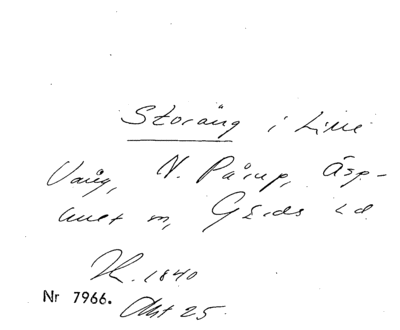 Storäng i Lille
Vång, N. Pårup, Äsp-
huset m, Gärds hd
H. 1840
Nr 7966. Akt 25.